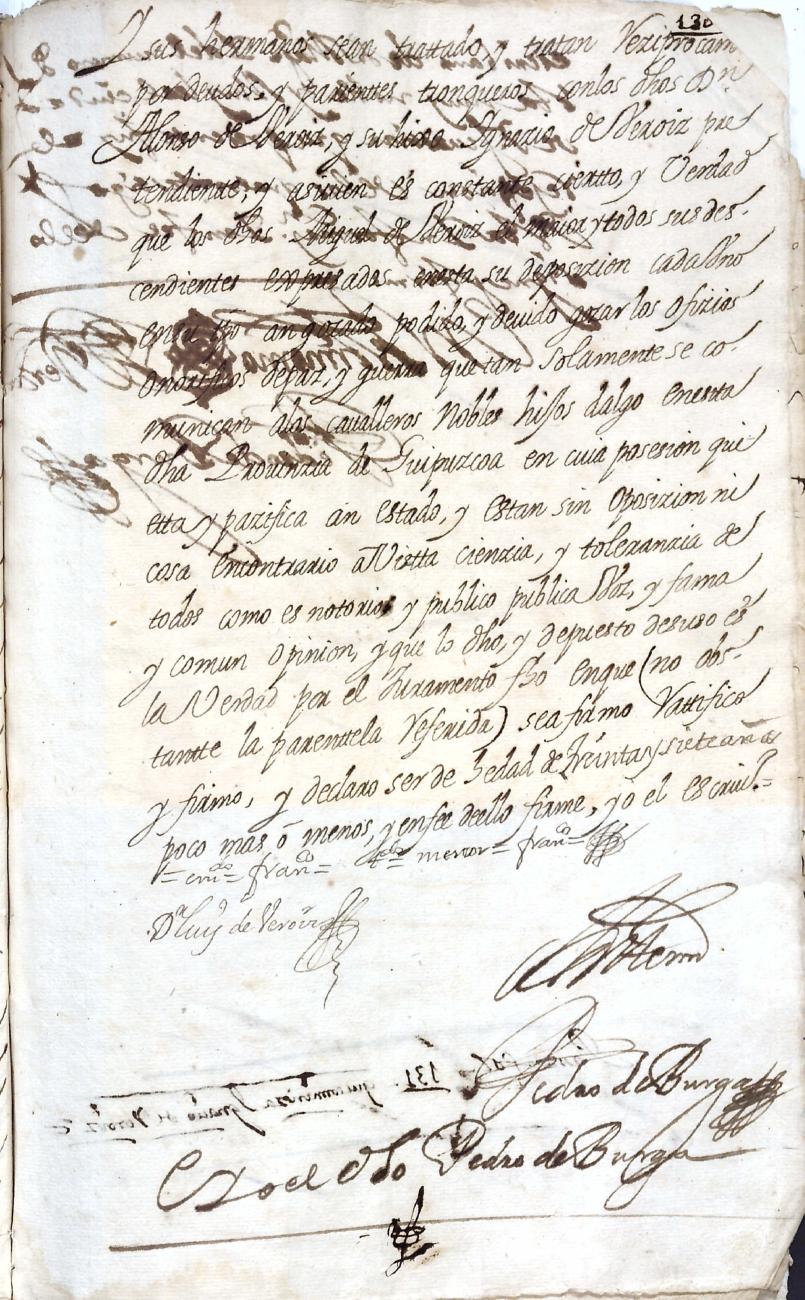 130
Y sus hermanos sean trattado y tratan Reziprocam
por deudos, y parienttes tronqueros con los dhos Dn
Alonso de Veroiz, y su hixo Ygnazio de Veroiz pre
tendiente, y asimen es constante ciertto, y Verdad
que los dhos Miguel de Veroiz el maior y todos sus des-
cendientes expresados en esta su deposizion cada Vno
en su tpo an gozado podido, y deuido gozar los ofizios
onorificos de paz, y guerra que tan solamente se co-
munican alos caualleros Nobles hijos dalgo enestta
dha Prouinzia de Guipuzcoa en cuia posesion qui
etta y pazifica an estado, y estan sin oposizion ni
cosa encontrario a Vistta cienzia, y toleranzia de
todos como es notorio y publico publica Voz, y fama
y comun opinion, y que lo dho, y depuesto desuso es
la Verdad por el Juramento fho enque (no obs-
tantte la parenttela Referida) se afirmo Rattifico
y firmo, y declaro ser de hedad de treinta y siete años
poco mas o menos, y enfee dello firme, yo el escriu.o=
Dn Luis de Veroiz
Pedro de Burga
131
Exo el dho Pedro de Burga